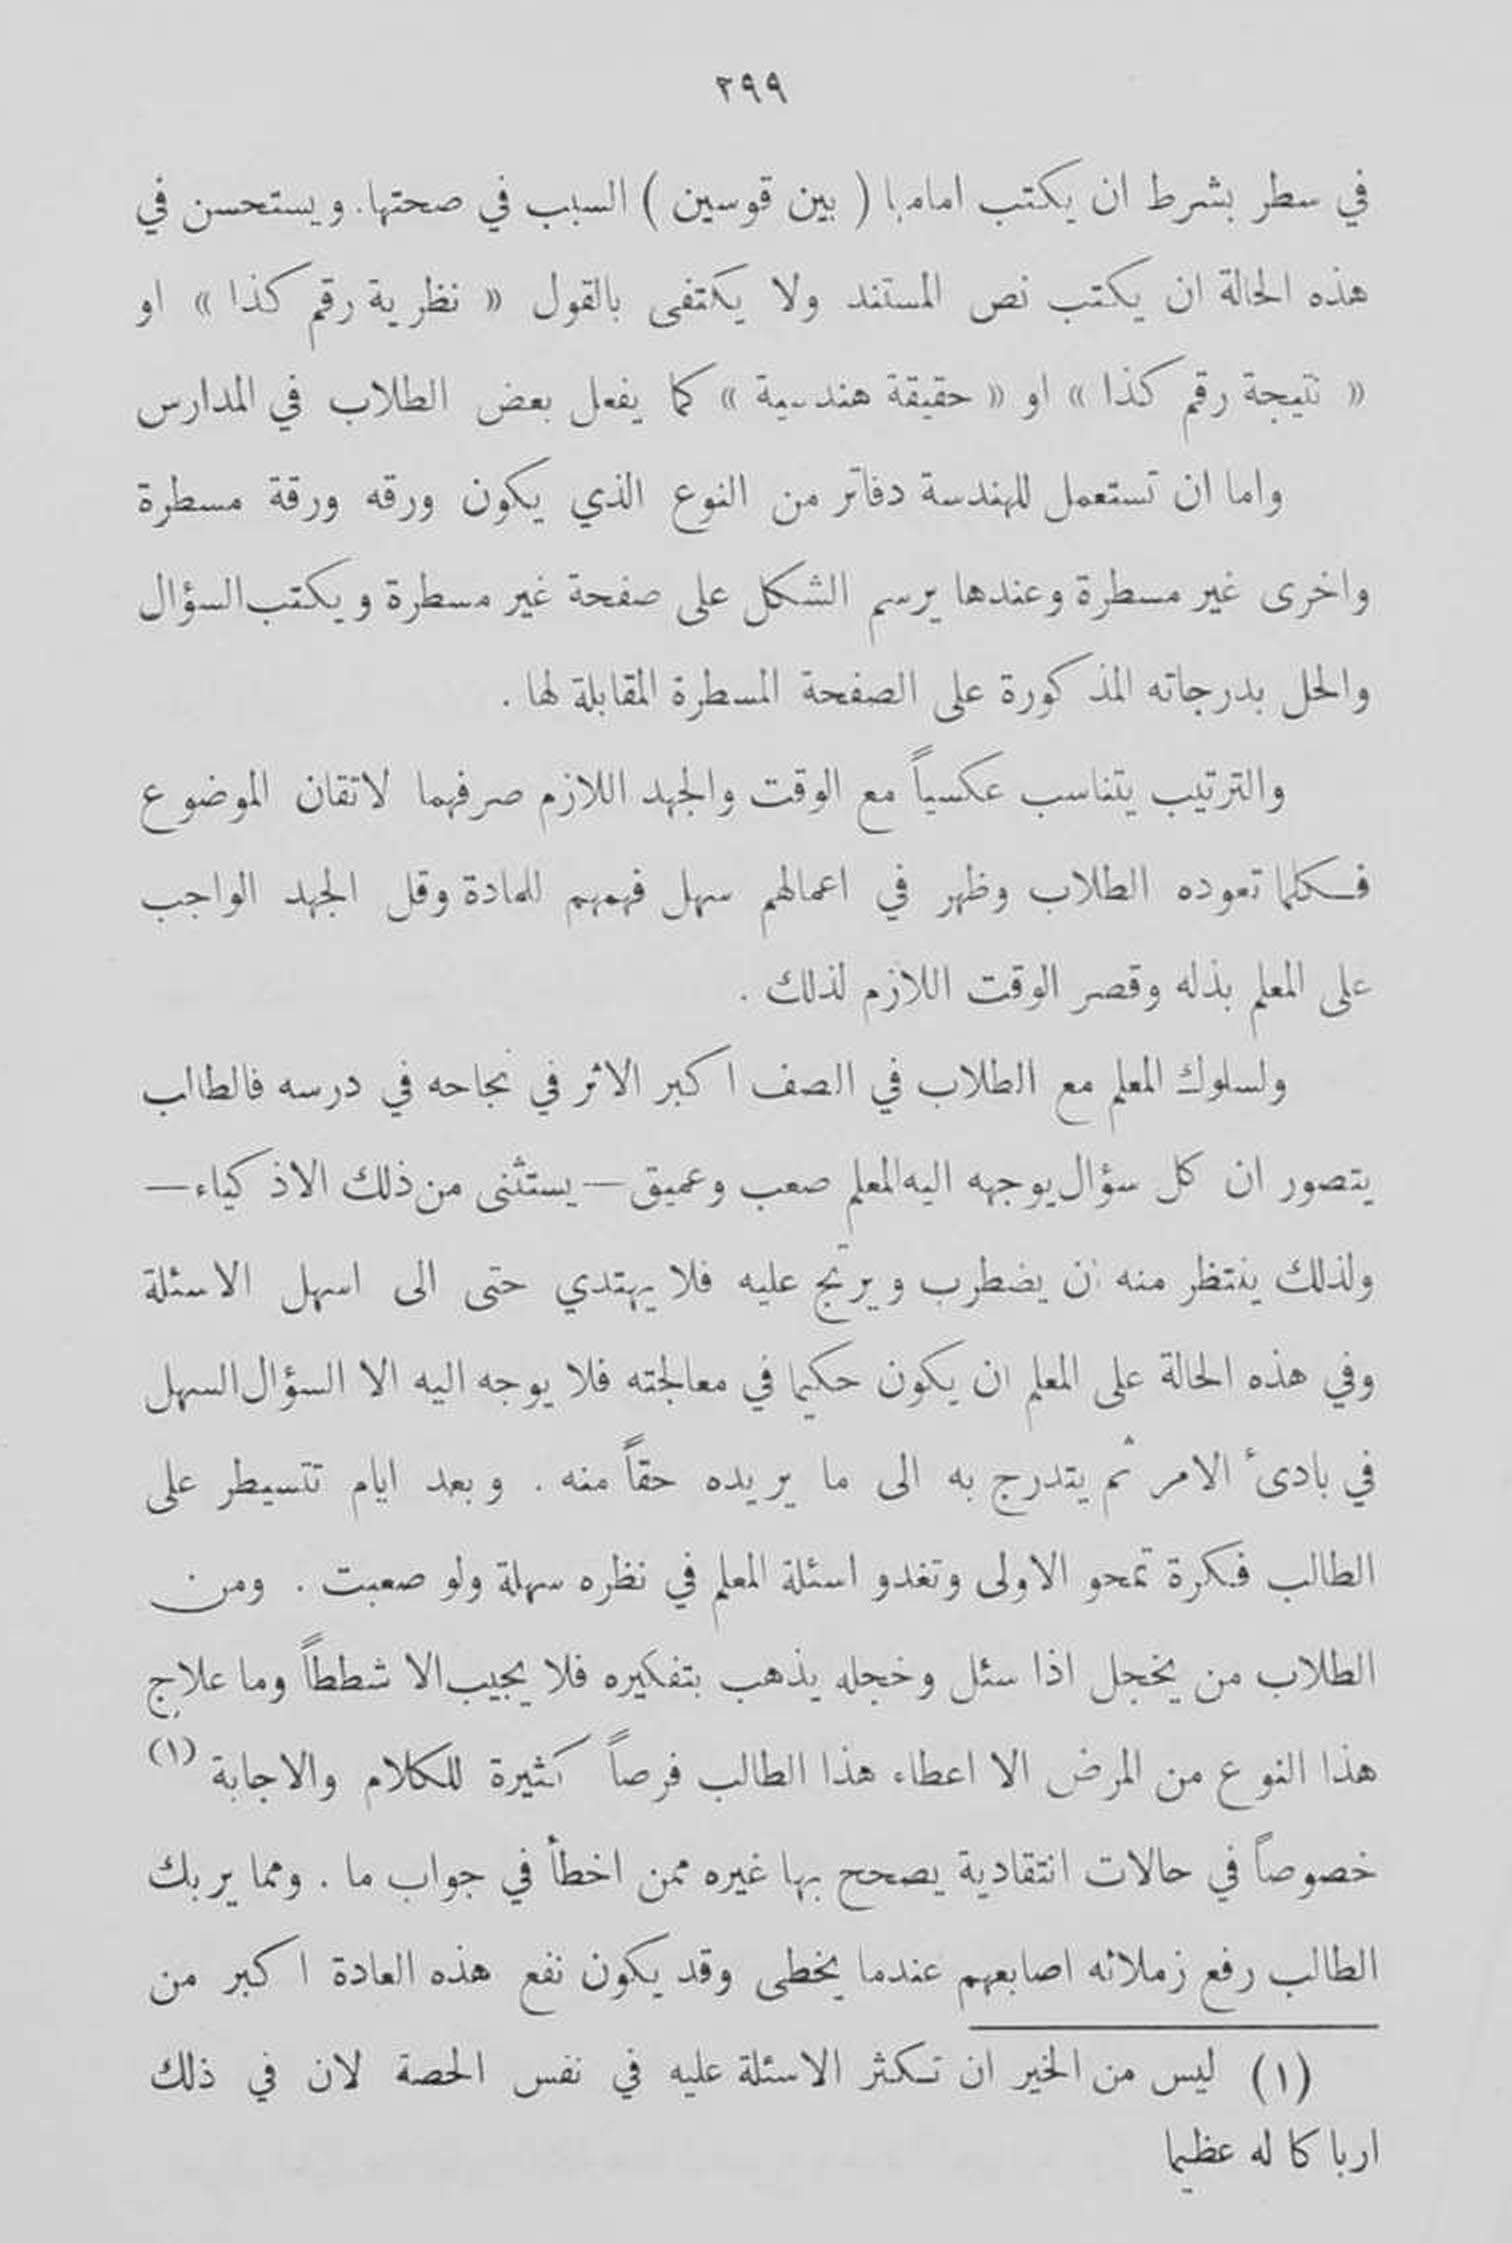 ٢٩٩
في سطر بشرط ان يكتب امامها ( بين قوسين ) السبب في صحتها. ويستحسن في
هذه الحالة ان يكتب نص المستند ولا يكتفى بالقول « نظرية رقم كذا » او
« نتيجة رقم كذا » او « حقيقة هندسية » كما يفعل بعض الطلاب في المدارس
واما ان تستعمل للهندسة دفاتر من النوع الذي يكون ورقه ورقة مسطرة
واخرى غير مسطرة وعندها يرسم الشكل على صفحة غير مسطرة ويكتب السؤال
والحل بدرجاته المذكورة على الصفحة المسطرة المقابلة لها .
والترتيب يتناسب عكسياً مع الوقت والجهد اللازم صرفهما لاتقان الموضوع
فكلما تعوده الطلاب وظهر في اعمالهم سهل فهمهم للمادة وقل الجهد الواجب
على المعلم بذله وقصر الوقت اللازم لذلك .
ولسلوك المعلم مع الطلاب في الصف اكبر الاثر في نجاحه في درسه فالطالب
يتصور ان كل سؤال يوجهه اليه المعلم صعب وعميق — يستثنى من ذلك الاذكياء —
ولذلك ينتظر منه ان يضطرب ويرتج عليه فلا يهتدي حتى الى اسهل الاسئلة
وفي هذه الحالة على المعلم ان يكون حكيما في معالجته فلا يوجه اليه الا السؤال السهل
في بادئ الامر ثم يتدرج به الى ما يريده حقاً منه . وبعد ايام تتسيطر على
الطالب فكرة تمحو الاولى وتغدو اسئلة المعلم في نظره سهلة ولو صعبت . ومن
الطلاب من يخجل اذا سئل وخجله يذهب بتفكيره فلا يجيب الا شططاً وما علاج
هذا النوع من المرض الا اعطاء هذا الطالب فرصاً كثيرة للكلام والاجابة (١)
خصوصاً في حالات انتقادية يصحح بها غيره ممن اخطأ في جواب ما . ومما يربك
الطالب رفع زملائه اصابعهم عندما يخطى وقد يكون نفع هذه العادة اكبر من
(١) ليس من الخير ان تكثر الاسئلة عليه في نفس الحصة لان في ذلك
ارباكا له عظيما